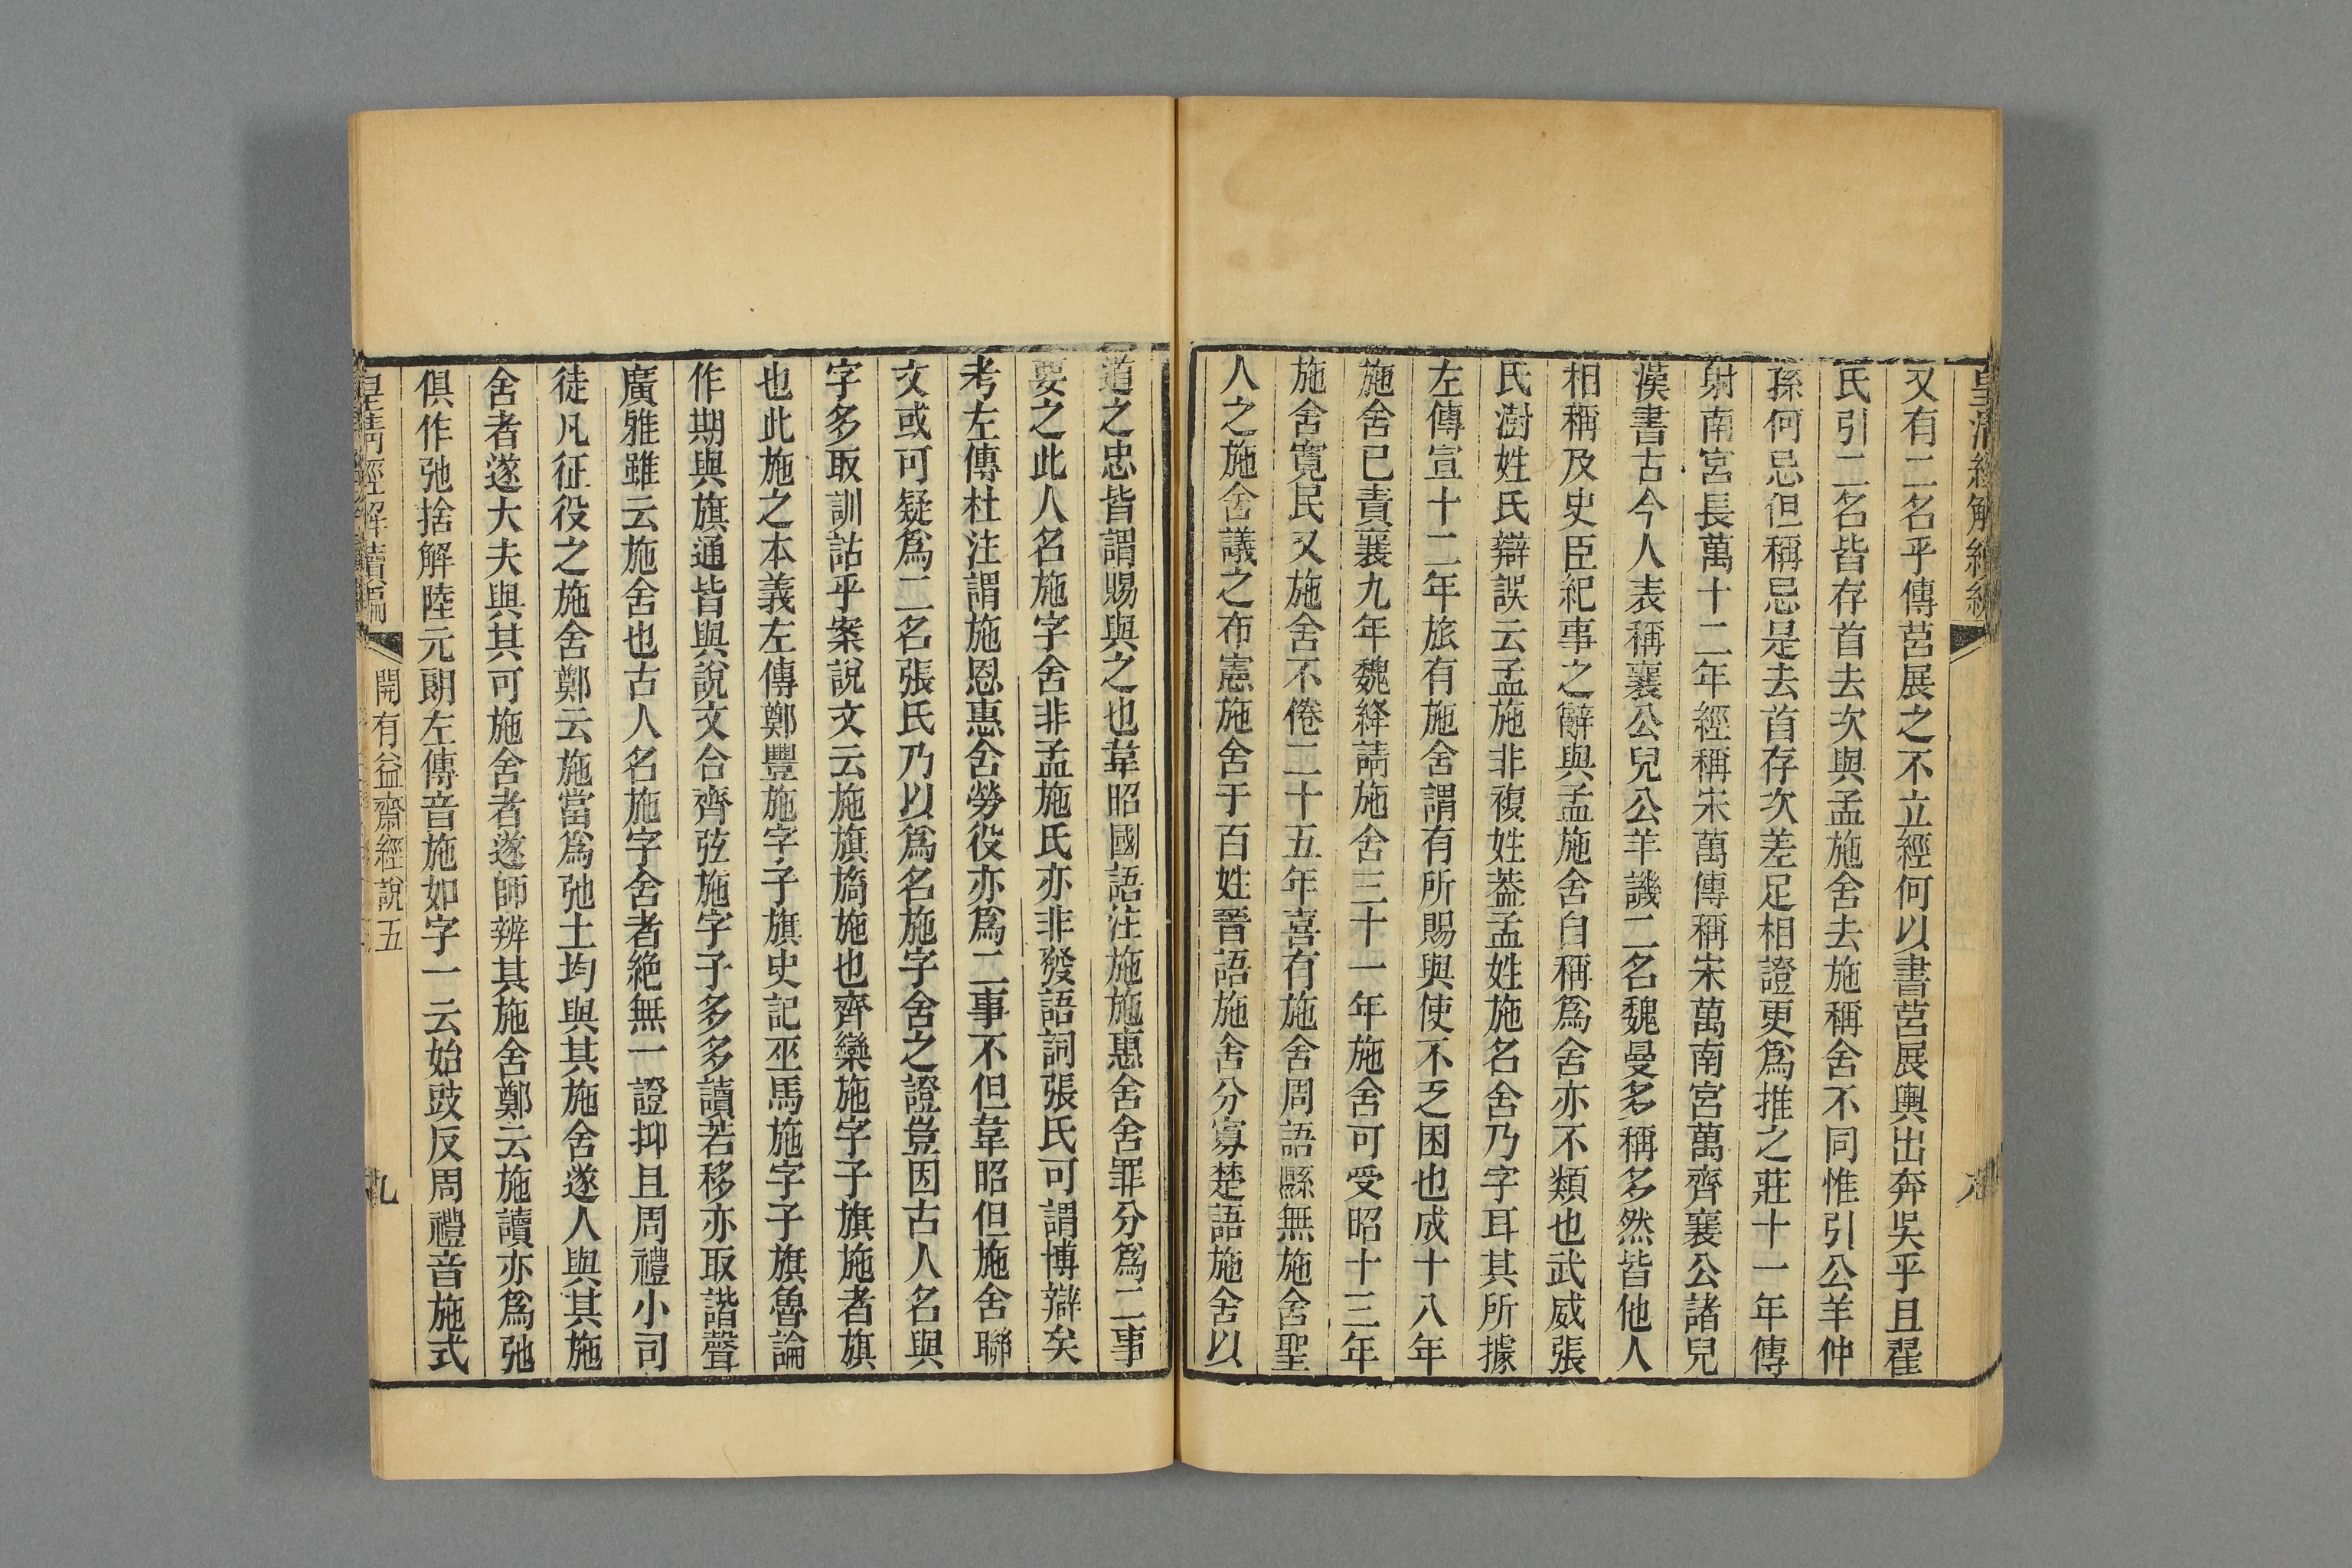 皇清經解續編
又有二名乎傳莒展之不立經何以書莒展輿出奔吳乎且翟
氏引二名皆存首去次與孟施舍去施稱舍不同惟引公羊仲
孫何忌但稱忌是去首存次差足相證更爲推之莊十一年傳
射南宮長萬十二年經稱宋萬傳稱宋萬南宮萬齊襄公諸兒
漢書古今人表稱襄公兒公羊譏二名魏曼多稱多然皆他人
相稱及史臣紀事之辭與孟施舍自稱爲舍亦不類也武威張
氏澍姓氏辯誤云孟施非複姓葢孟姓施名舍乃字耳其所據
左傳宣十二年旅有施舍謂有所賜與使不乏困也成十八年
施舍已責襄九年魏絳請施舍三十一年施舍可受昭十三年
施舍寬民又施舍不倦二十五年喜有施舍周語縣無施舍聖
人之施舍議之布憲施舍于百姓晉語施舍分寡楚語施舍以
道之忠皆謂賜與之也韋昭國語注施施惠舍舍罪分爲二事
要之此人名施字舍非孟施氏亦非發語詞張氏可謂博辯矣
考左傳杜注謂施恩惠舍勞役亦爲二事不但韋昭但施舍聯
文或可疑爲二名張氏乃以爲名施字舍之證豈因古人名與
字多取訓詁乎案說文云施旗旖施也齊欒施字子旗施者旗
也此施之本義左傳鄭豐施字子旗史記巫馬施字子旗魯論
作期與旗通皆與說文合齊弦施字子多多讀若移亦取諧聲
廣雅雖云施舍也古人名施字舍者絶無一證抑且周禮小司
徒凡征役之施舍鄭云施當爲弛土均與其施舍遂人與其施
舍者遂大夫與其可施舍者遂師辨其施舍鄭云施讀亦爲弛
俱作弛捨解陸元朗左傳音施如字一云始豉反周禮音施式
皇淸經解續編
開有益齋經說五
九